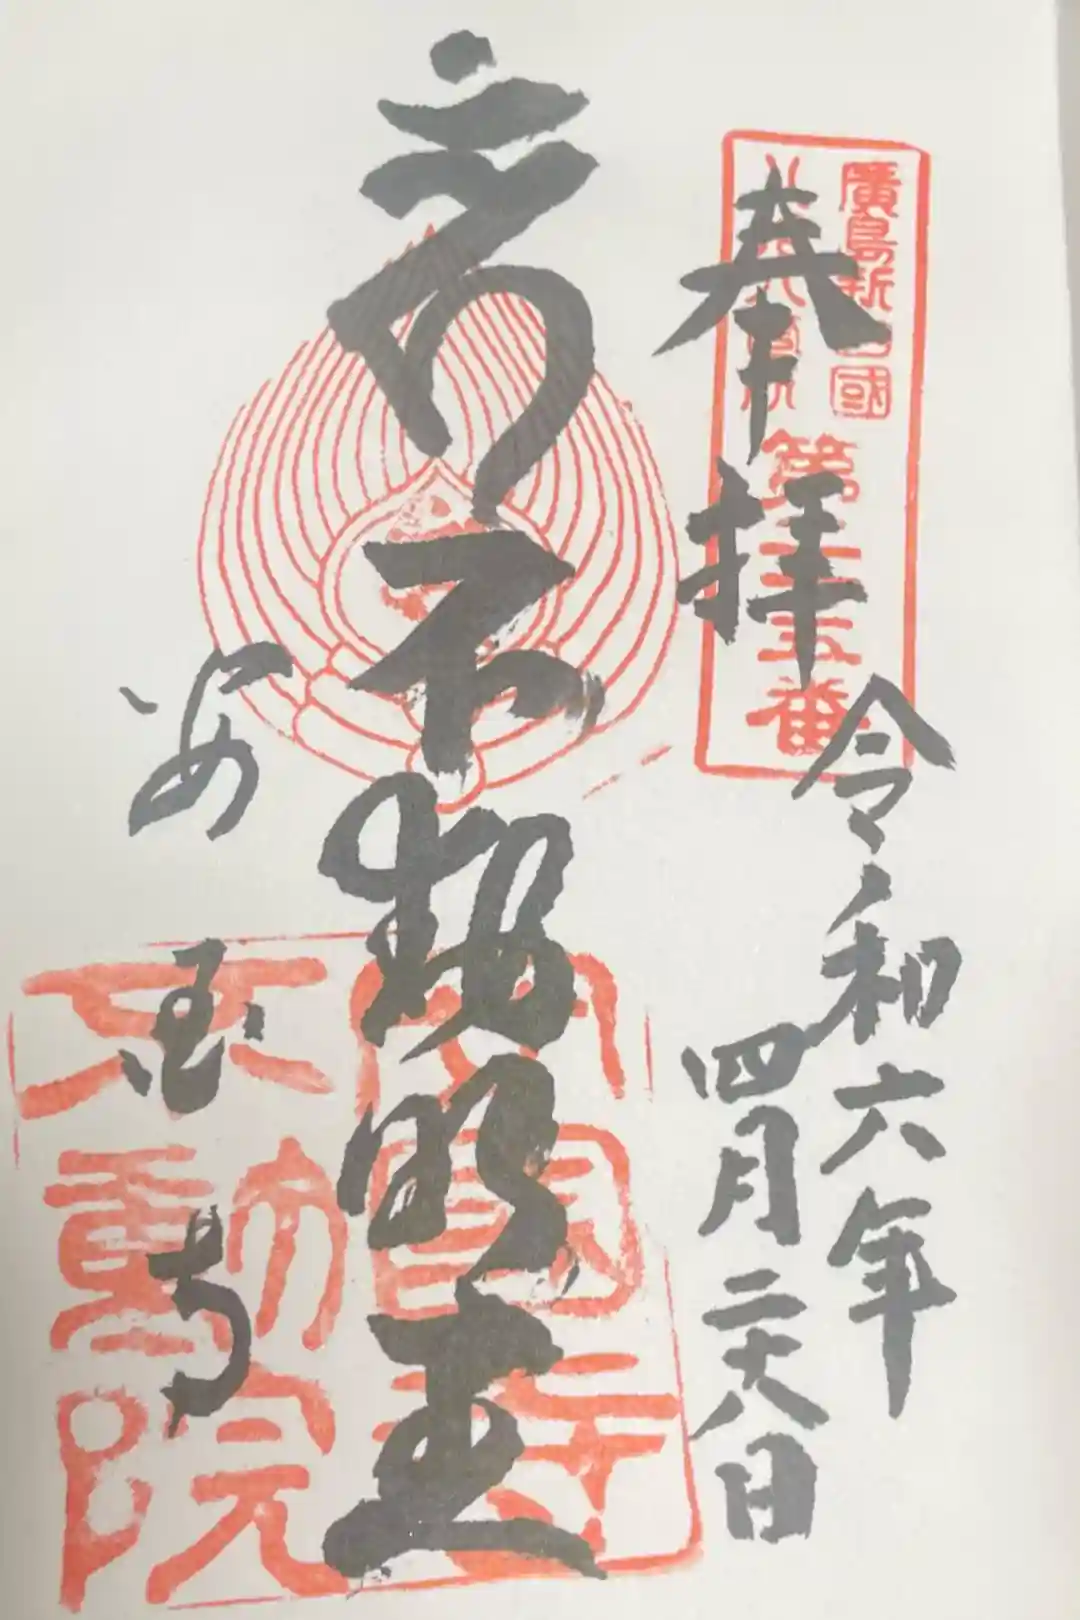 廣島新四國
八十八ヶ所
奉拝
令和六年
四月二十八日
不動明王
安国寺
安國寺
不動院